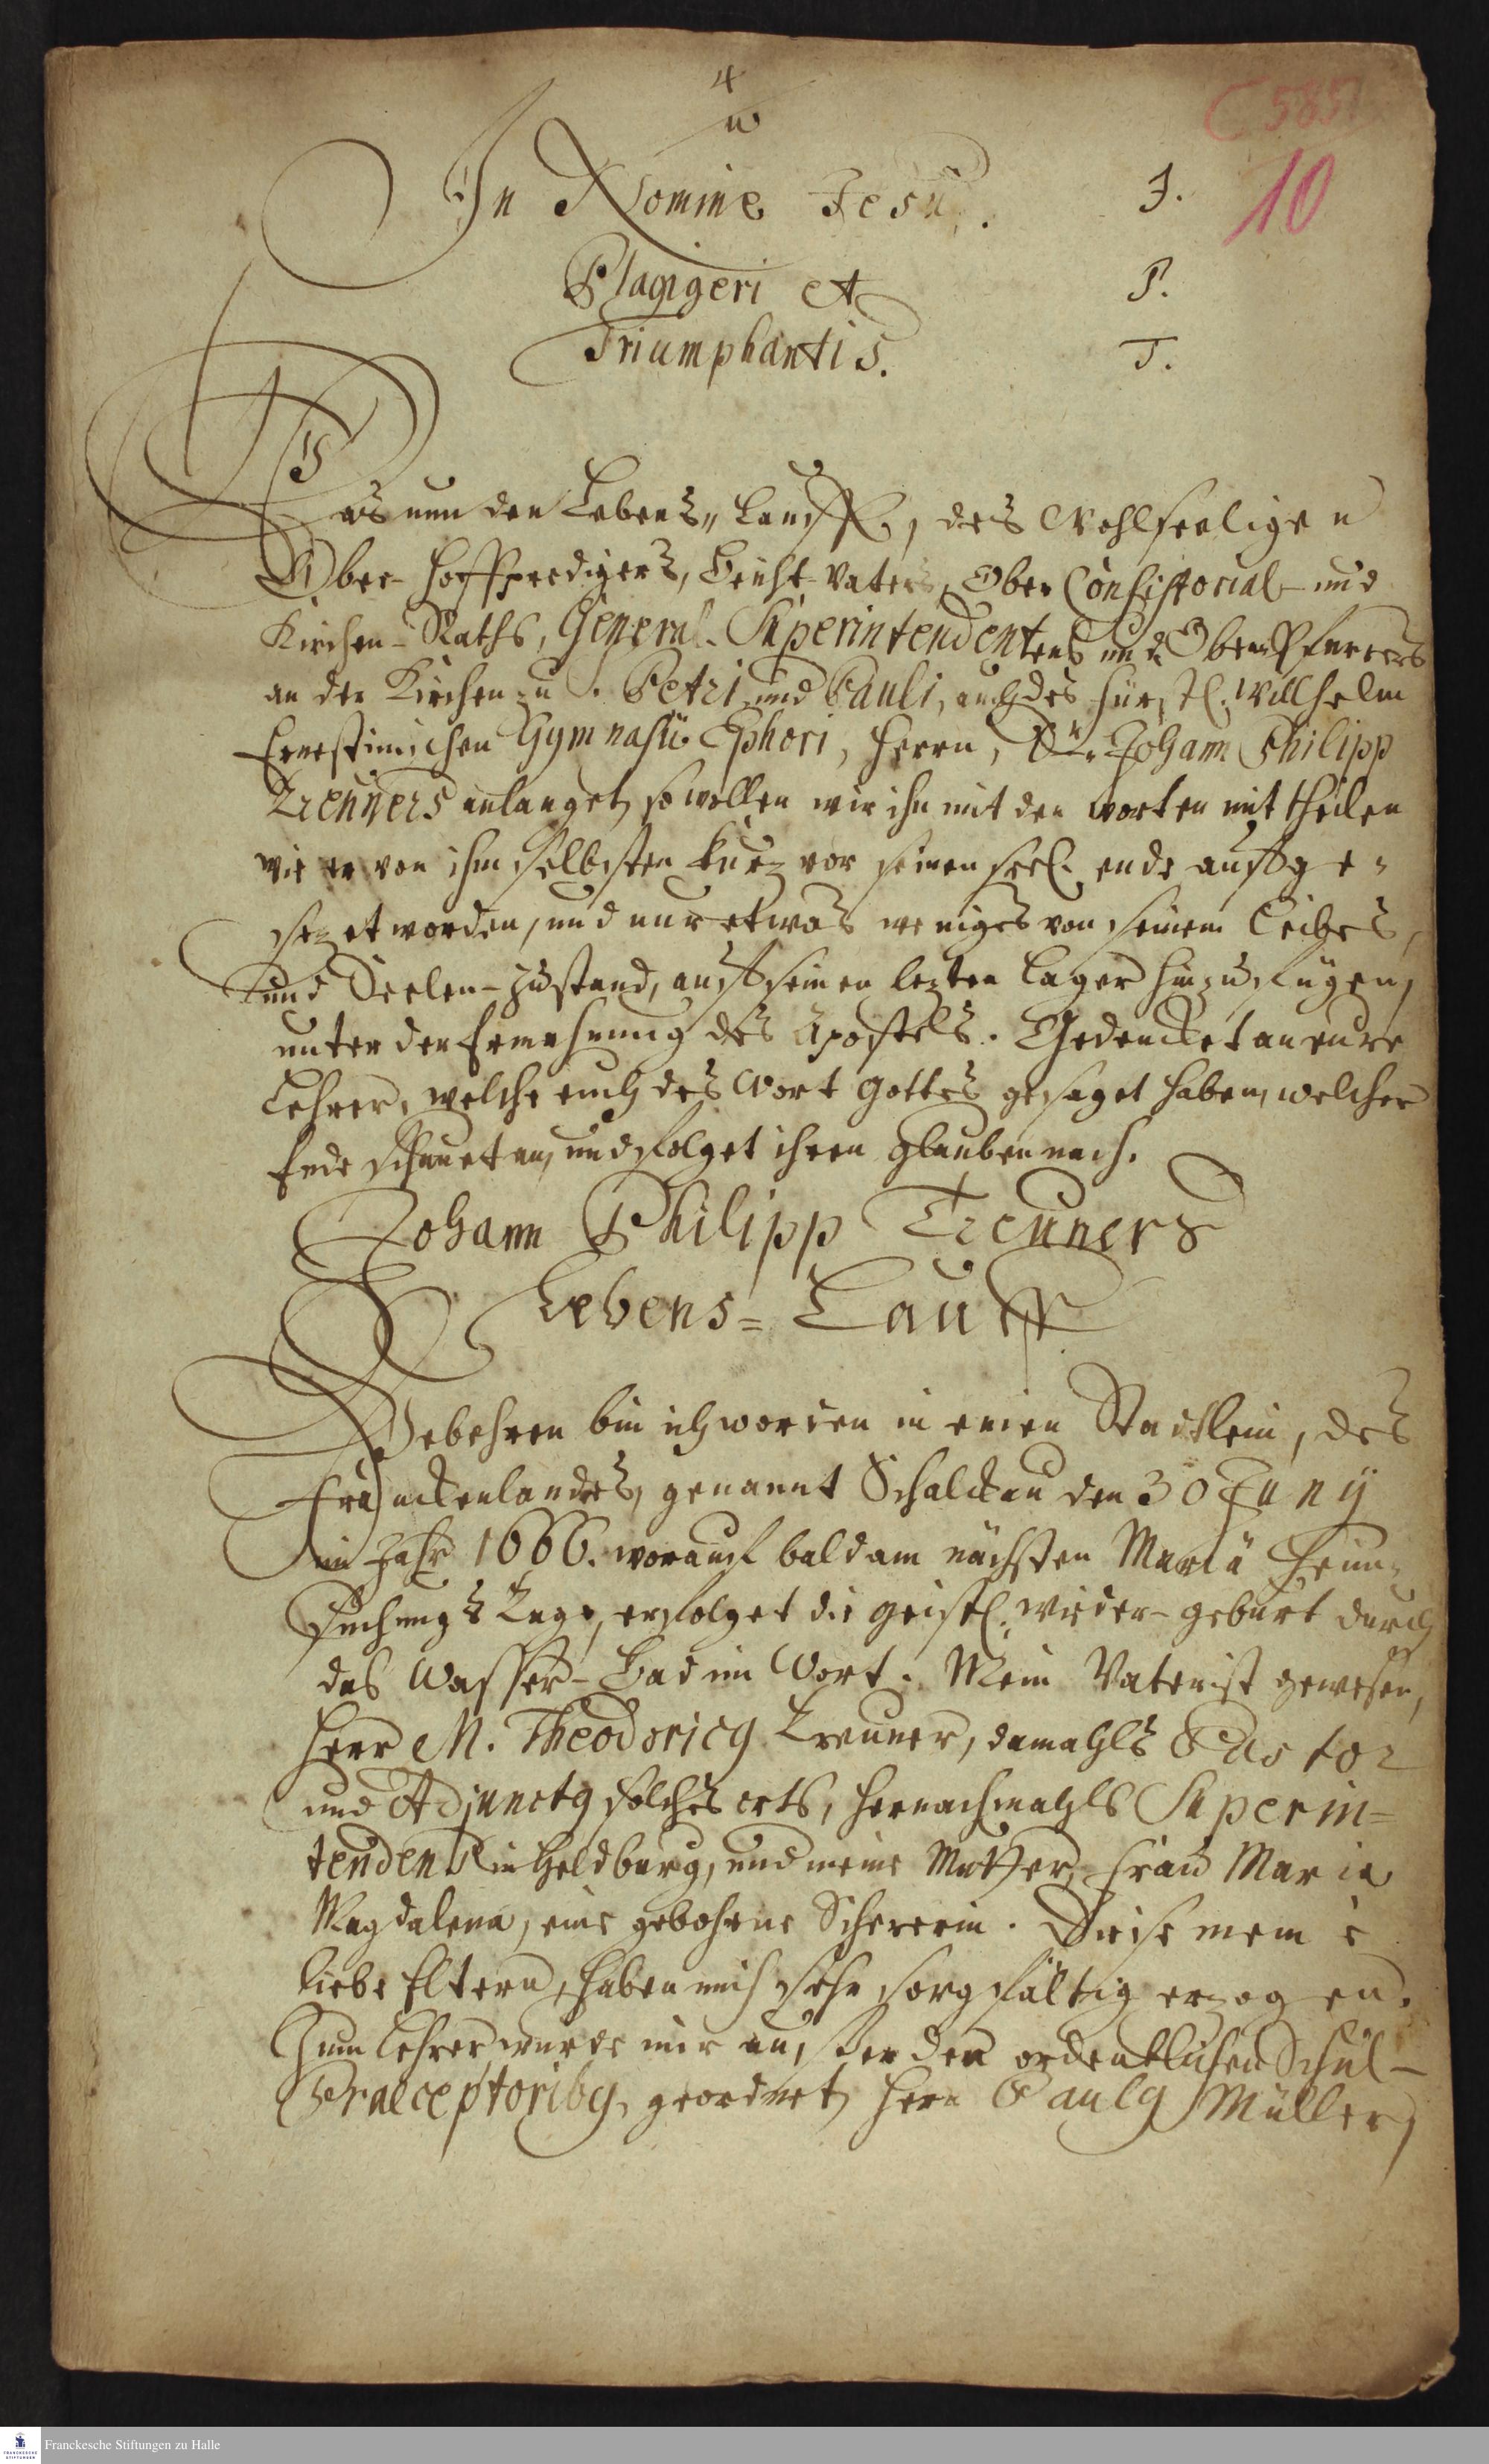 4
w
C 585
10
In Nomine Jesu. J.
Plagigeri et P.
Triumphantis. T.
Was nun den Lebens-Lauff, des Wohlseeligen
Ober-Hoffpredigers, Beicht-Vaters, Ober Consistorial- und
Kirchen-Raths, General-Superintendentens und Oberpfarrers
an der Kirchen zu S. Petri und Pauli, auch des Fürstl. Willhelm
Ernestinischen Gymnasii Ephori, Herrn, Dr. Johann Philipp
Treuners anlanget, so wollen wir ihn mit den worten mittheilen
wie er von ihm selbsten kurtz vor seinen seel. ende auffge-
setzet worden, und nur etwas weniges von seinem Leibes,
und Seelen-zustand, auff seinen lezten Lager hinzufügen,
unter der Ermahnung des Apostels. Gedencket an eure
Lehrer, welche euch das Wort Gottes gesaget haben, welcher
Ende schauet an, und folget ihren Glauben nach.
Johann Philipp Treuners
Lebens-Lauff
Gebohren bin ich worden in einen Stadtlein, des
Franckenlandes, genannt Schalckau den 30 Juny
im Jahr 1666. worauf bald am nächsten Mariä Heim-
suchungs Tage, erfolget die geistl. wieder-geburt durch
das Wasser-Bad im Wort. Mein Vater ist gewesen,
Herr M. Theodoricg Treuner, damahls Pastor
und Adjunctg solches orts, hernachmahls Superin-
tendens in Heldburg, und meine Mutter, Frau Maria
Magdalena, eine gebohrne Schererin. Diese meine
liebe Eltern, haben mich sehr sorgfältig erzogen.
Zum Lehrer wurde mir ausser den ordentlichen Schul-
Praeceptoribg, geordnet, Herr Paulg Müller,
Franckesche Stiftungen zu Halle